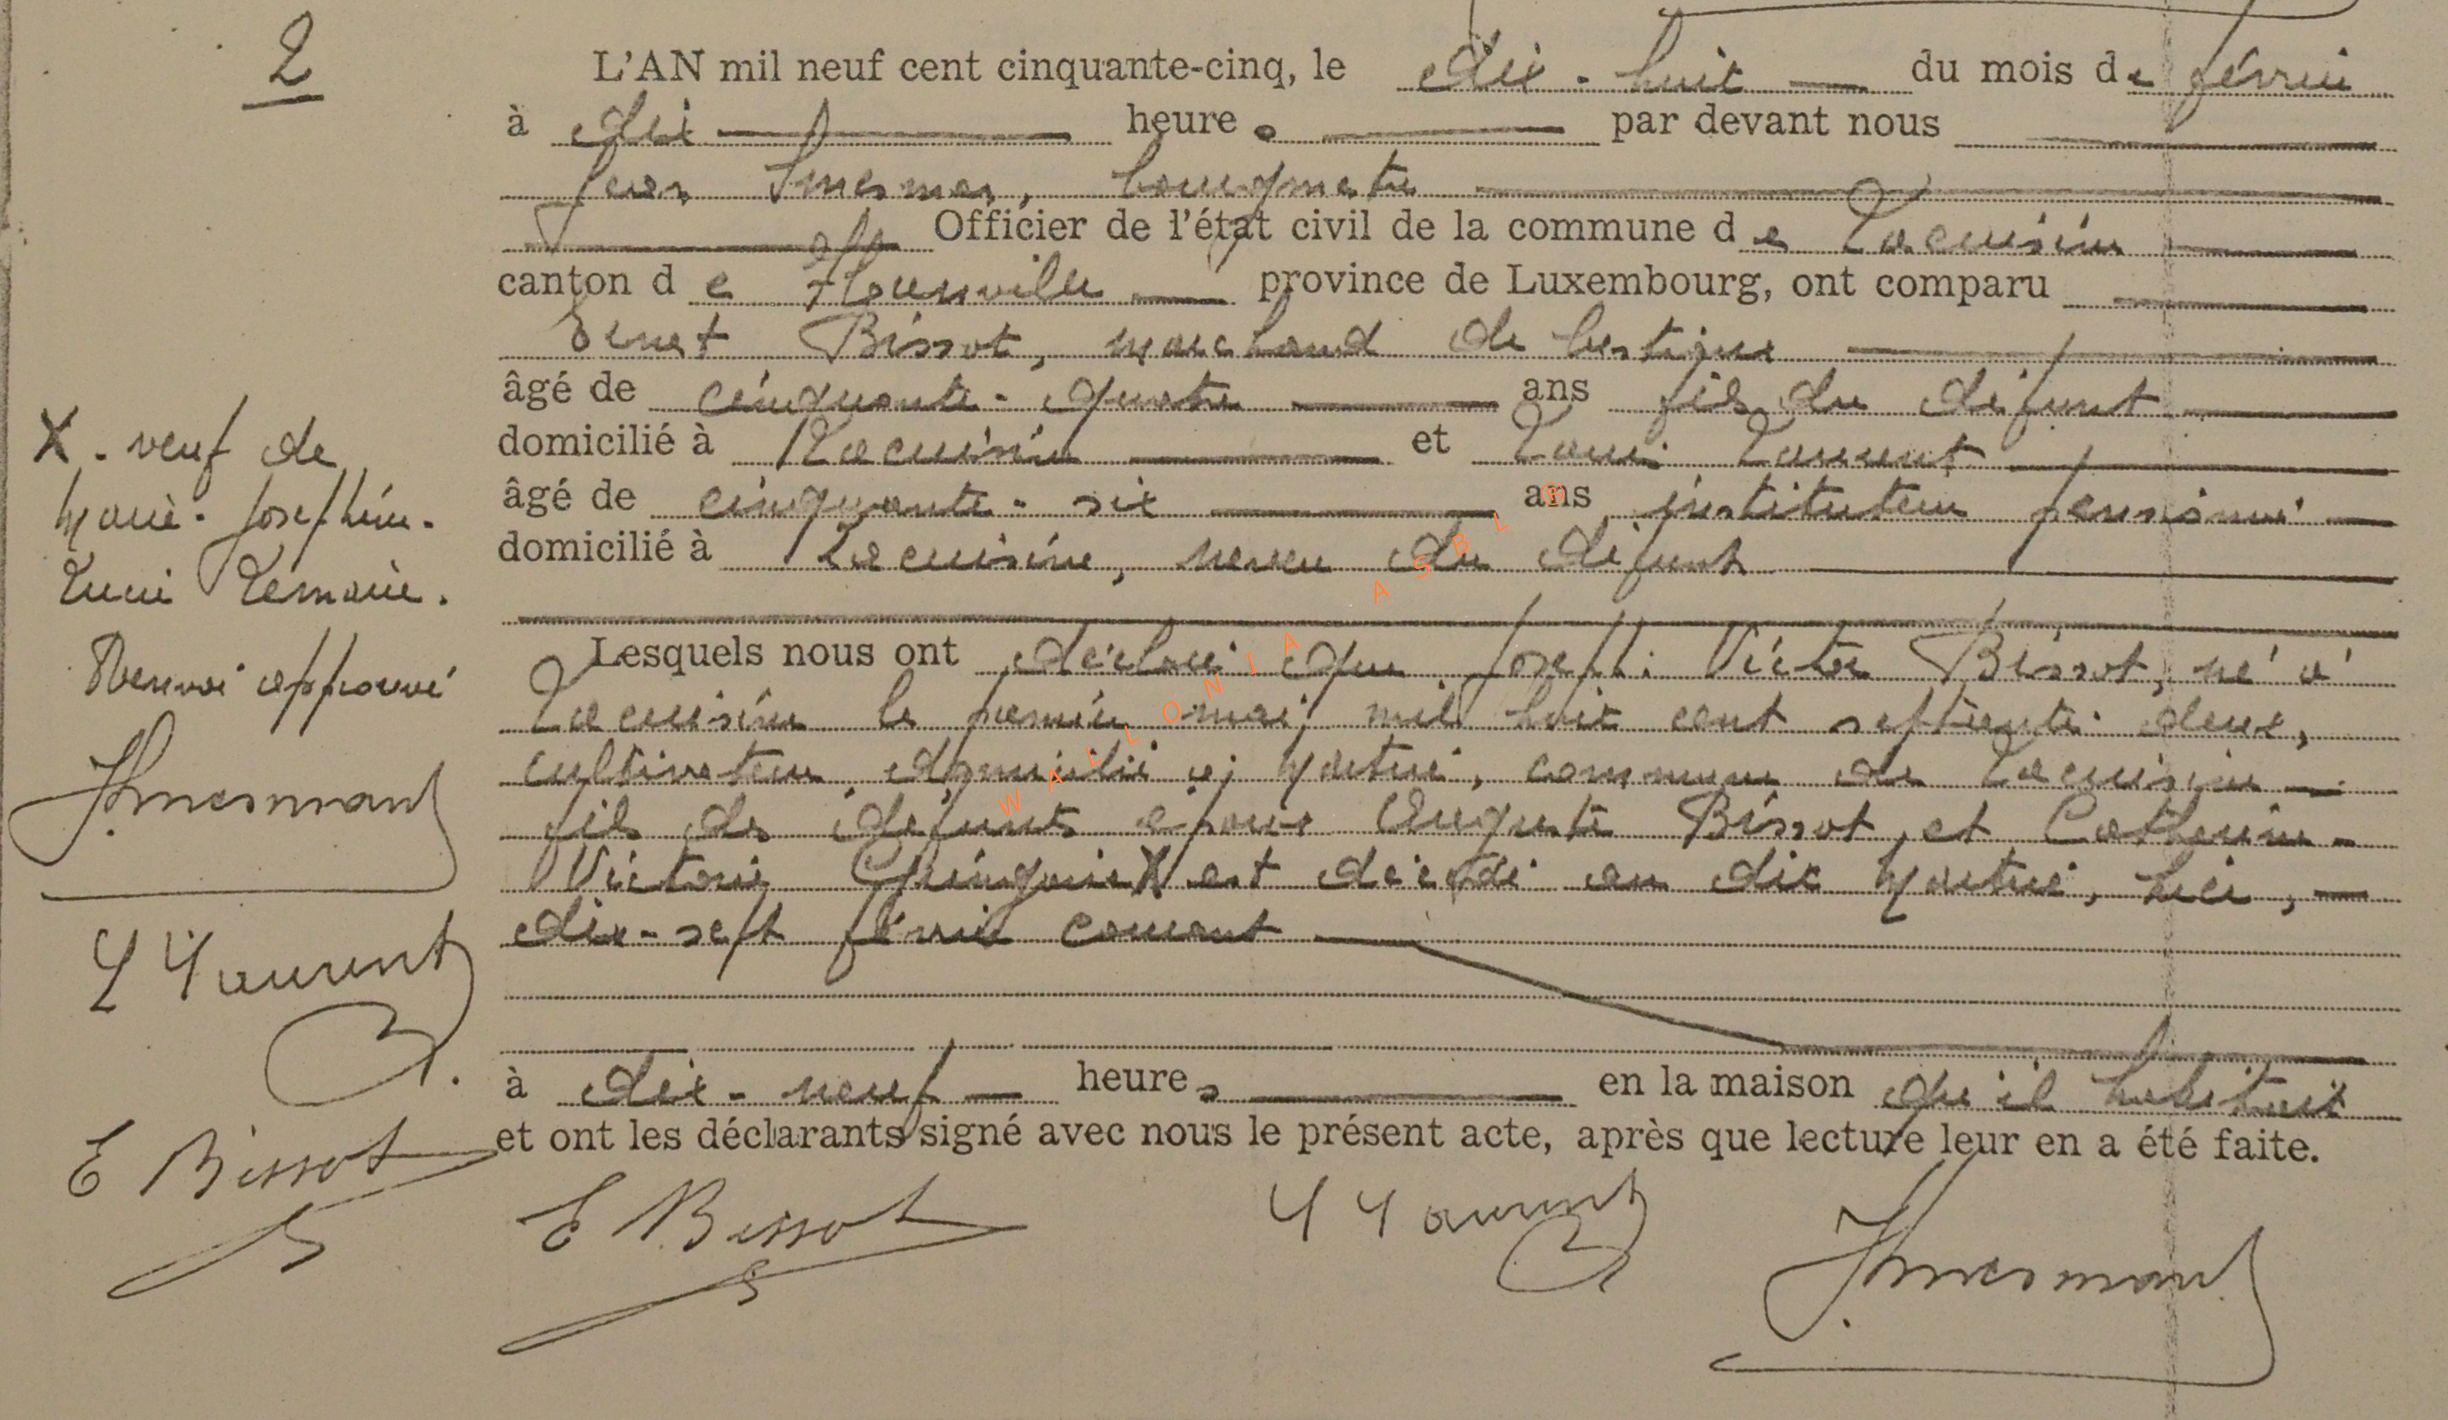 2
L'AN mil neuf cent cinquante-cinq, le dix-huit du mois de février
à dix heures par devant nous
Jean Smesman, bourgmestre
Officier de l'état civil de la commune de Lacuisine
canton de Florenville province de Luxembourg, ont comparu
Ernest Bissot, marchand de bestiaux
âgé de cinquante-quatre ans fils du défunt
domicilié à Lacuisine et Louis Laurent
âgé de cinquante-six ans instituteur pensionné
domicilié à Lacuisine, neveu du défunt
Lesquels nous ont déclaré que Joseph-Victor Bissot, né à
Lacuisine le premier mai mil huit cent septante-deux,
cultivateur domicilié à Martué, commune de Lacuisine
fils des défunts époux Auguste Bissot et Catherine-
Victorie X est décédé au dit Martué, hier,
dix-sept février courant
à dix-neuf heures en la maison qu'il habitait
et ont les déclarants signé avec nous le présent acte, après que lecture leur en a été faite.
E Bissot L Laurent J. Smesman
X - veuf de
Marie-Joséphine-
Lucie Lemaire.
Renvoi approuvé
J. Smesman
L Laurent
E Bissot
WALLONIA ASBL ©